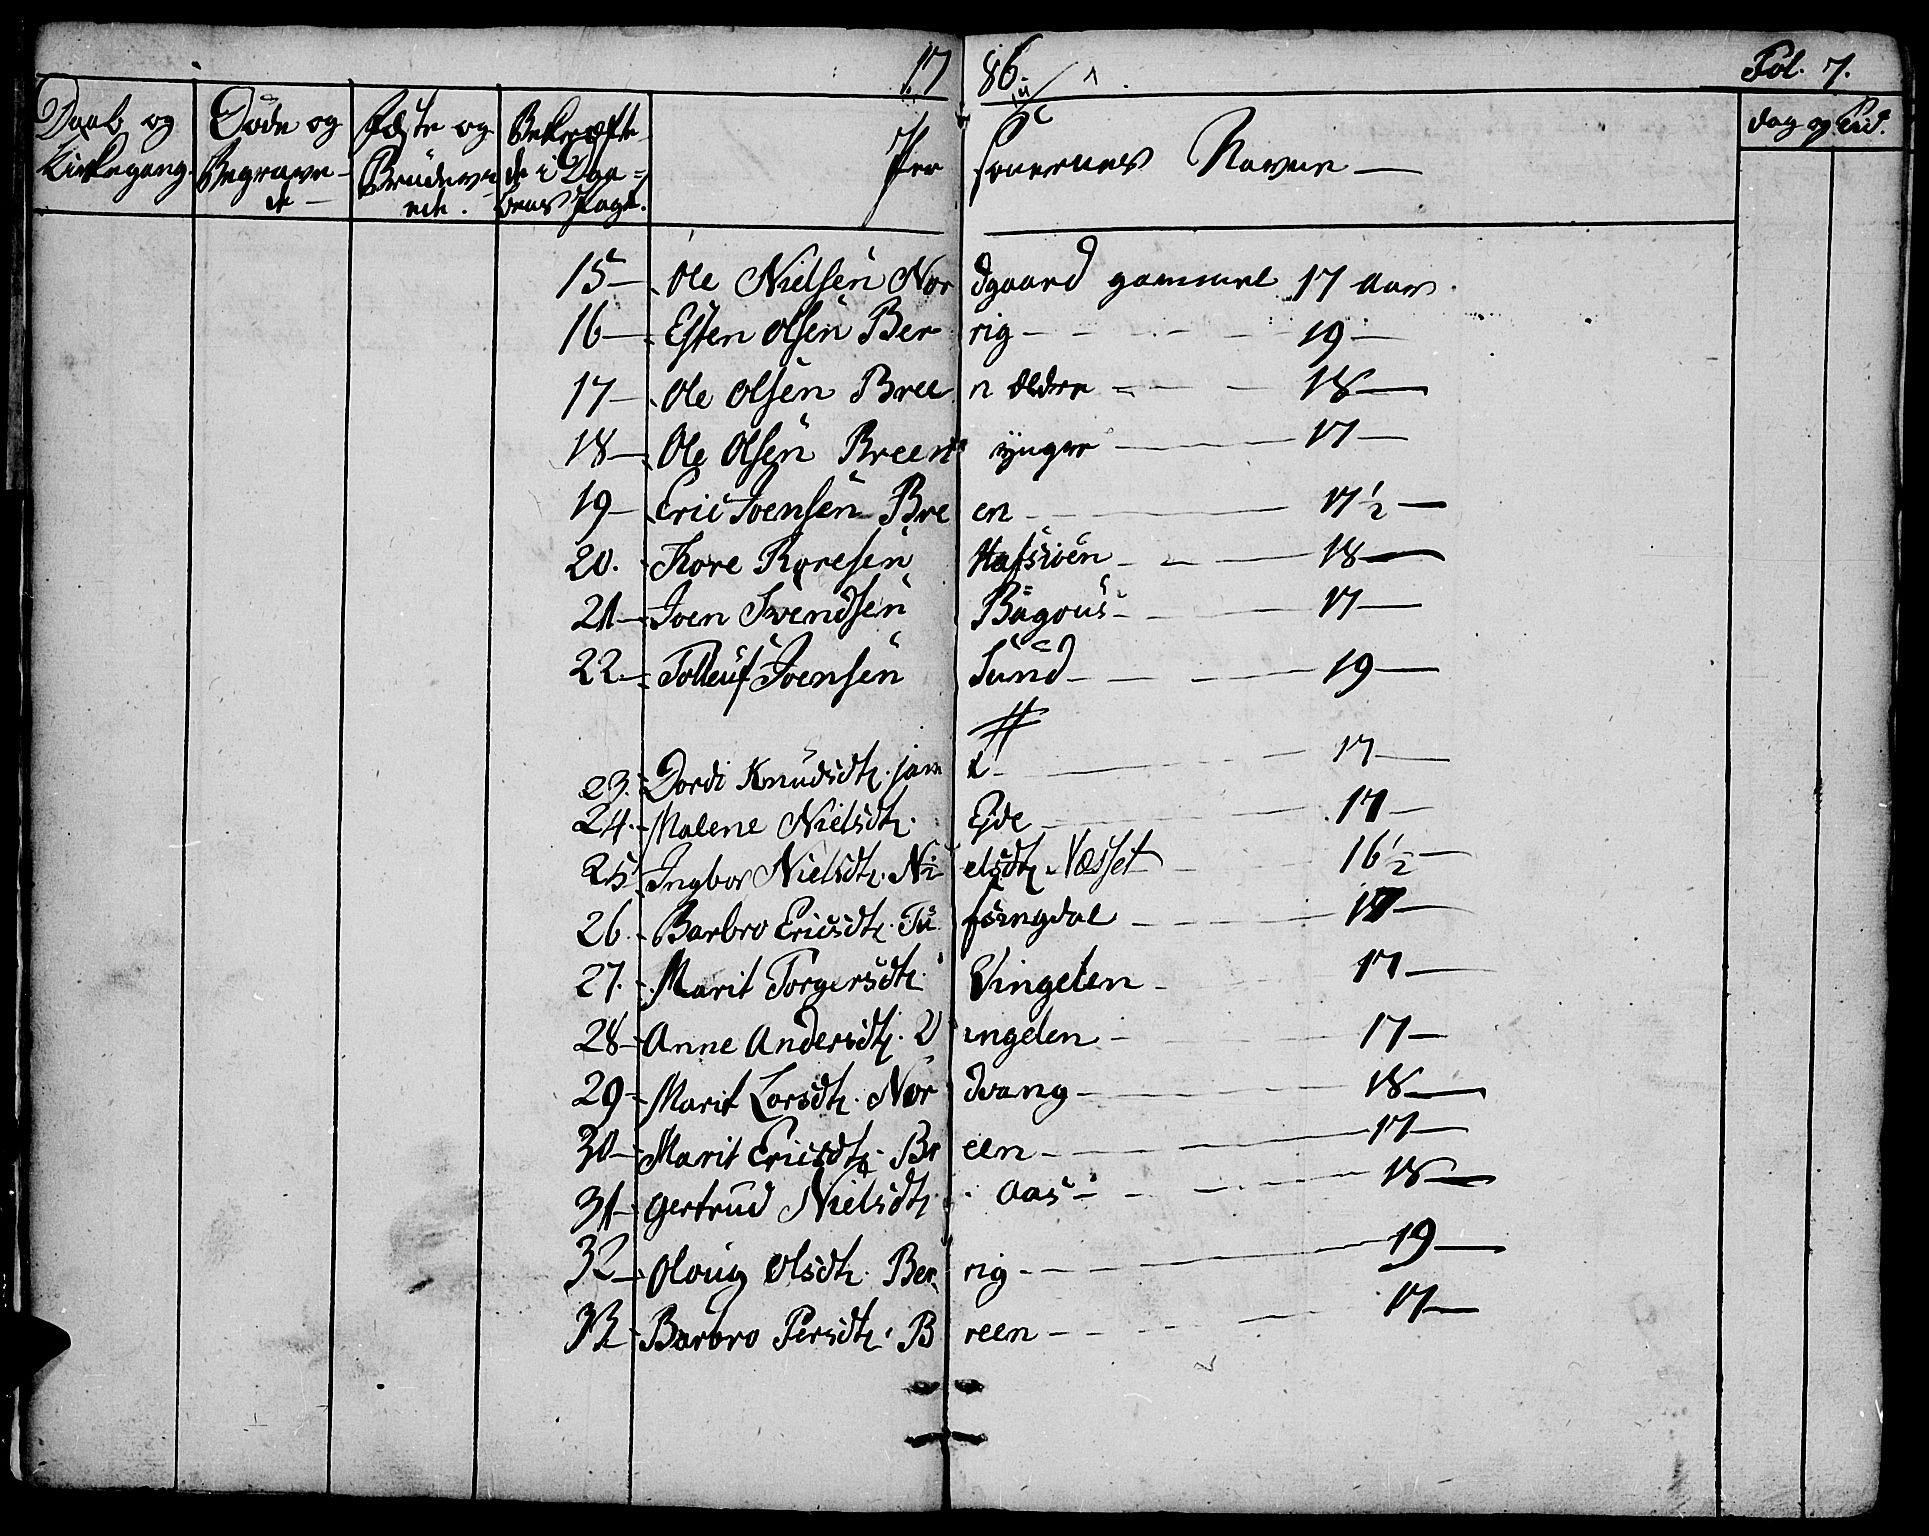 1786. Fol. 7.
Daab og Kirkegang. Døde og Begravede Fæste og Brudeviede. Bekræftede i Daabens Pagt. Personernes Navne — dag og Tid.
15 — Ole Nielsen Nordgaard gammel 17 Aar.
16 — Esten Olsen Berrig — 19 —
17 — Ole Olsen Breen ældre — 18 —
18 — Ole Olsen Breen yngre — 17 —
19 — Eric Joensen Breen — 17 1/2 —
20. Tore Toresen Hafsiøen — 18 —
21 — Joen Svendsen Bügous — 17 —
22 — Tolleuf Joensen Sund — 19 —
#
23. Dordi Knudsdtr. sam — 17 —
24. Malene Nielsdtr. Eide — 17 —
25 Ingbor Nielsdtr. Nielsdtr. Næsset — 16 1/2 —
26. Barbro Ericsdtr. Tufsingdal —
27. Marit Torgersdtr. Vingelen — 17 —
28 — Anne Andersdtr. Vingelen — 17 —
29 — Marit Larsdtr. Nordvang — 18 —
30 — Marit Ericsdtr. Breen — 17 —
31 — Gertrud Nielsdtr. Aas — 18 —
32 — Oloug Olsdtr. Berrig — 19 —
33 — Barbro Persdtr. Breen — 17 —